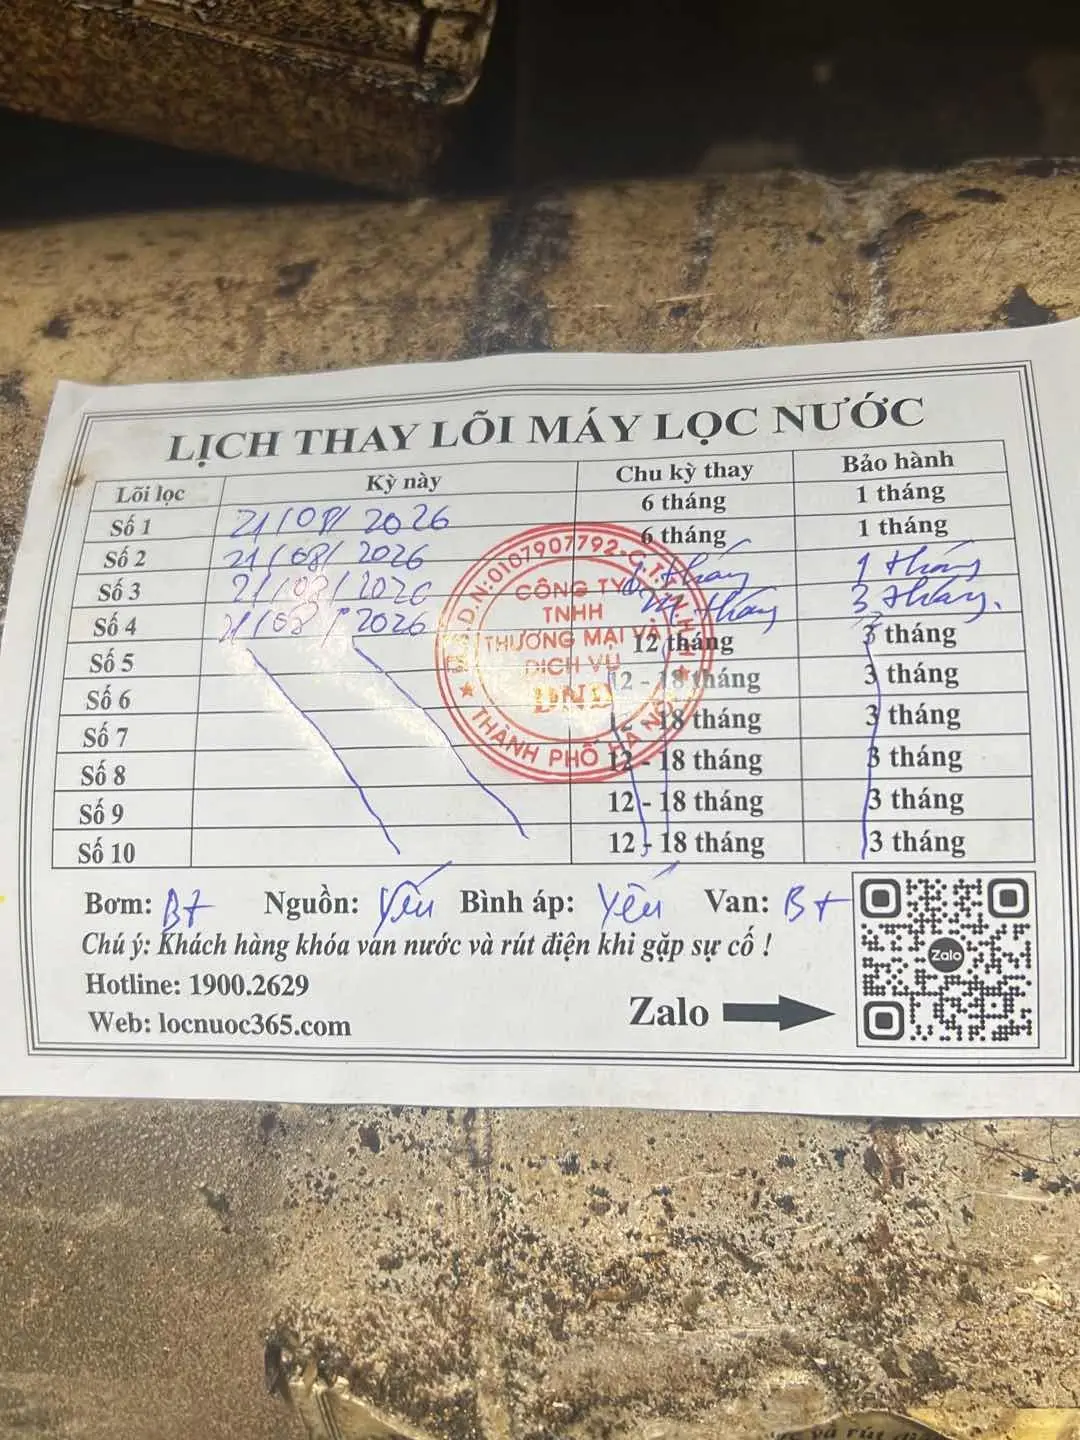 LỊCH THAY LÕI MÁY LỌC NƯỚC
Lõi lọc Kỳ này Chu kỳ thay Bảo hành
Số 1 21/08/2026 6 tháng 1 tháng
Số 2 21/08/2026 6 tháng 1 tháng
Số 3 21/08/2026 tháng 1 tháng
Số 4 21/08/2026 tháng 3 tháng.
Số 5 12 tháng 3 tháng
Số 6 12 - 18 tháng 3 tháng
Số 7 12 - 18 tháng 3 tháng
Số 8 12 - 18 tháng 3 tháng
Số 9 12 - 18 tháng 3 tháng
Số 10 12 - 18 tháng 3 tháng
M.S.D.N:0107907792-C.T.T.N.H.H
CÔNG TY
TNHH
THƯƠNG MẠI VÀ
DỊCH VỤ
DND
THÀNH PHỐ HÀ NỘI
Bơm: Bt Nguồn: Yếu Bình áp: Yếu Van: Bt
Chú ý: Khách hàng khóa van nước và rút điện khi gặp sự cố !
Hotline: 1900.2629
Web: locnuoc365.com
Zalo
Zalo
và rút điện